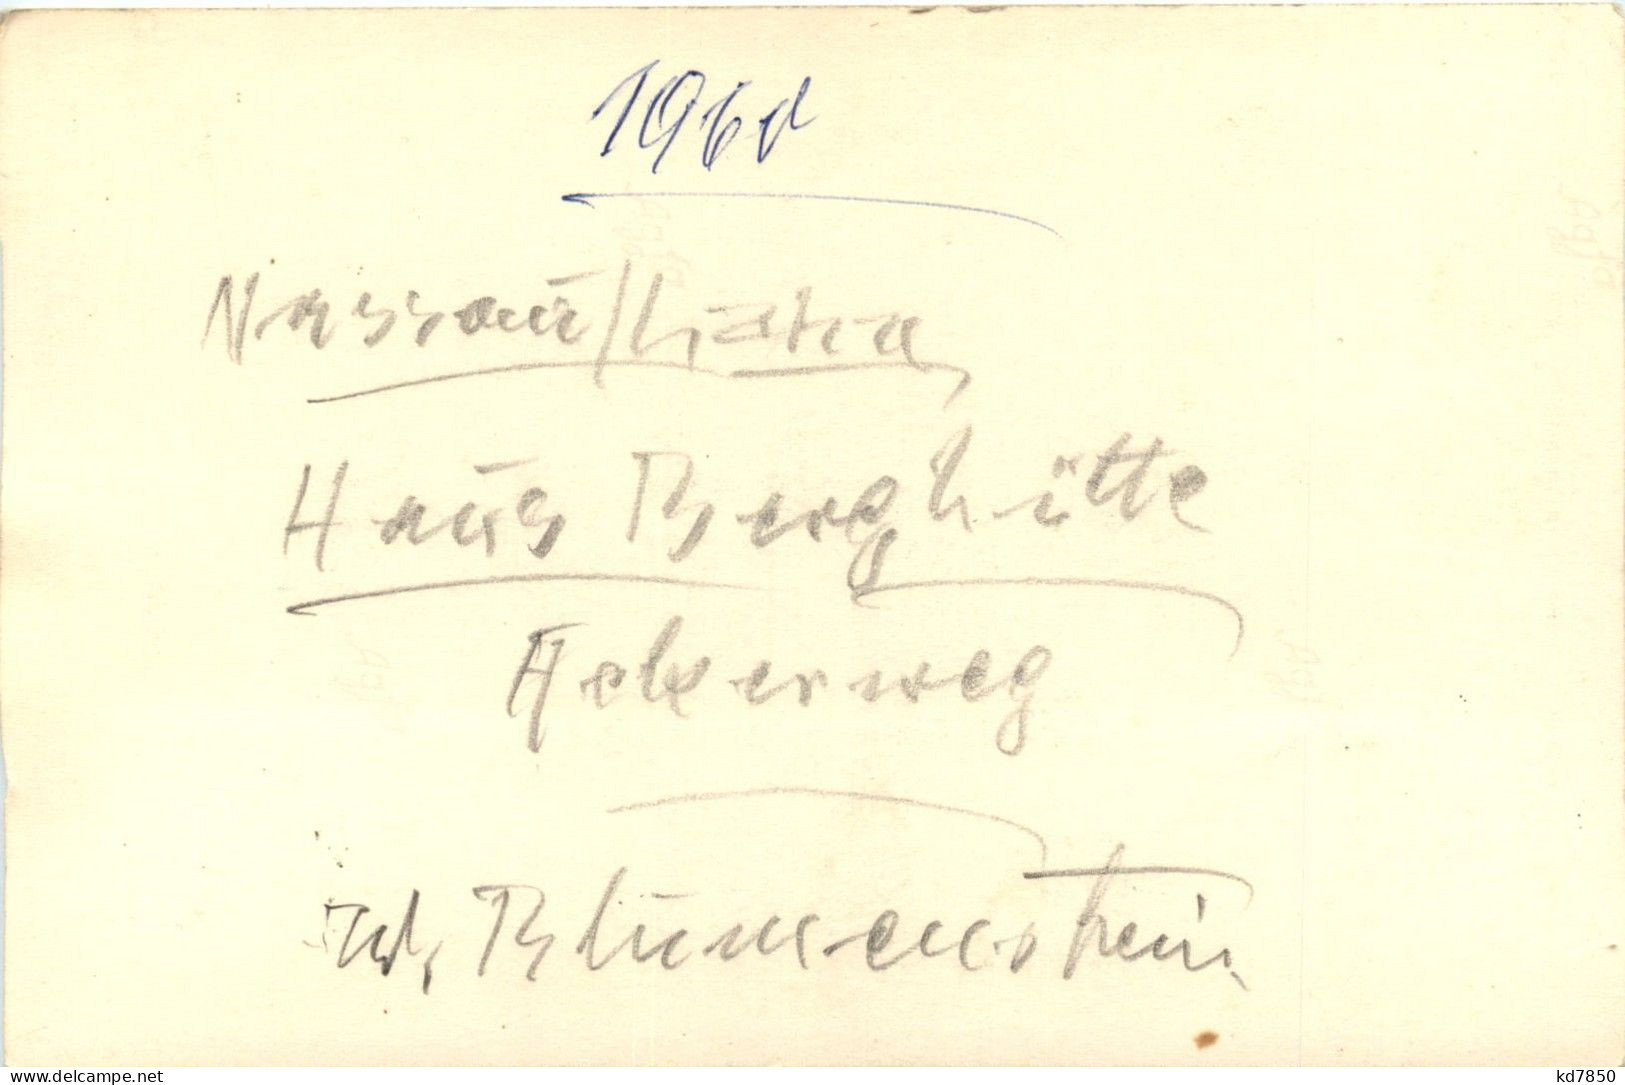 1960
Nassau/Lahn
Haus Berghütte
Ackerweg
Inh. Blumenstein
www.delcampe.net
kd7850